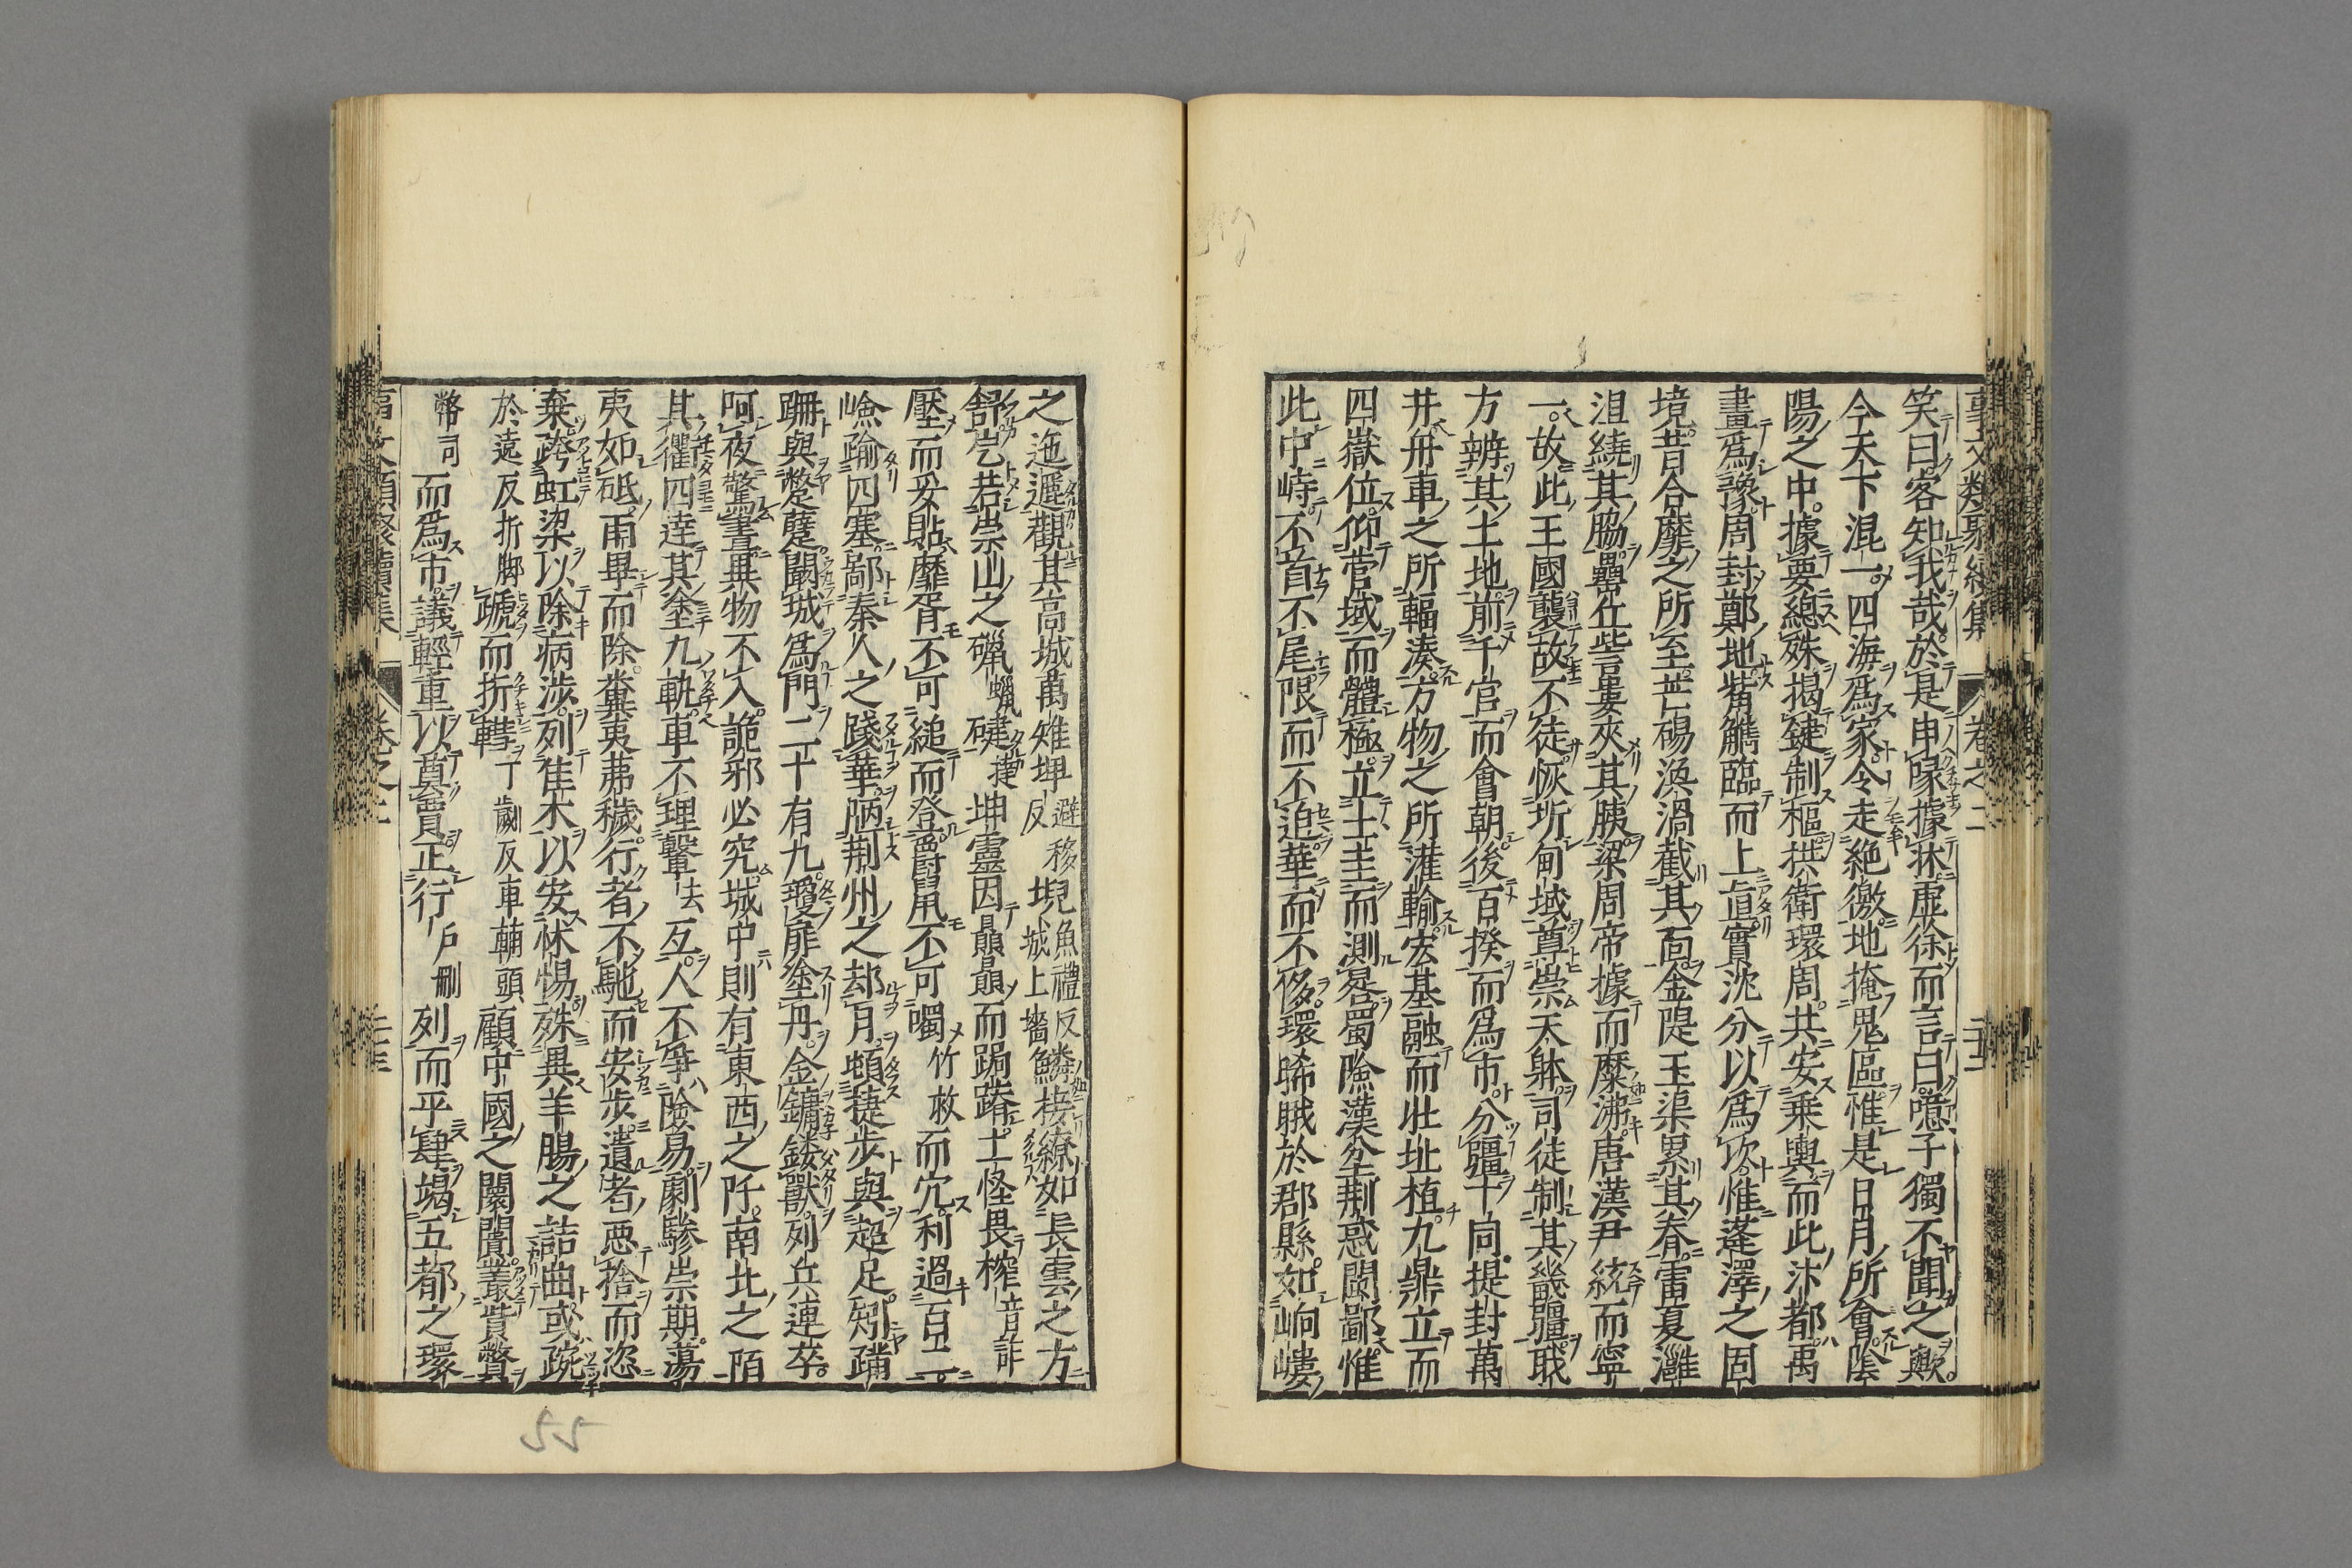 事文類聚續集 卷之二
笑曰客知我哉於是申喙據牀虛徐而言曰噫子獨不聞之歟
今天下混一四海爲家令走絶徼地掩鬼區惟是日月所會陰
陽之中據要總殊揭鍵制樞拱衛環周共安乘輿而此汴都禹
畫爲豫周封鄭地觜觿臨而上直實沈分以爲次惟蓬澤之固
境昔合靡之所至芒碭渙渦截其面金隄玉渠累其脊雷夏灉
沮繞其脇壘丘訾婁夾其胰梁周帝據而麋沸唐漢尹統而寧
一故此王國襲故不徒恢圻甸域尊崇天躰司徒制其畿疆職
方辨其土地前千官而會朝後百揆而爲市分疆十同提封萬
井舟車之所輻湊方物之所灌輸宏基融而壯址植九鼎立而
四嶽位仰營域而體極立土圭而測晷蜀險漢坌荆惑閩鄙惟
此中峙不首不尾限而不迫華而不侈環睎睋於郡縣如岣嶁
之迤邐觀其高城萬雉埤避移反堄魚禮反城上墻鱗接繚如長雲之方
舒屹若崇山之磼礏坤靈因贔屭而跼蹐土怪畏榨音詐
壓而妥貼靡胥不可縋而登爵鼠不可噣竹救而穴利過百二
嶮踰四塞鄙秦人之踐華陋荆州之却月蝢捷步與超足矧蹣
跚與蹩躠闢城爲門二十有九瓊扉塗丹金鋪鏤獸列兵連卒
呵夜警晝異物不入詭邪必究城中則有東西之阡南北之陌
其衢四達其塗九軌車不理轚去互人不爭險易劇驂崇期蕩
夷如砥雨畢而除糞夷茀穢行者不馳而安步遺者惡捨而恣
棄跨虹梁以除病涉列佳木以安怵惕殊異羊腸之詰曲或踠
於遠反折脚蹏而折轊丁歲反車軸頭顧中國之闤闠叢貲幣
幣司而爲市議輕重以奠賈正行戶刪列而平肆竭五都之瓌
事文類聚續集 卷之二
55